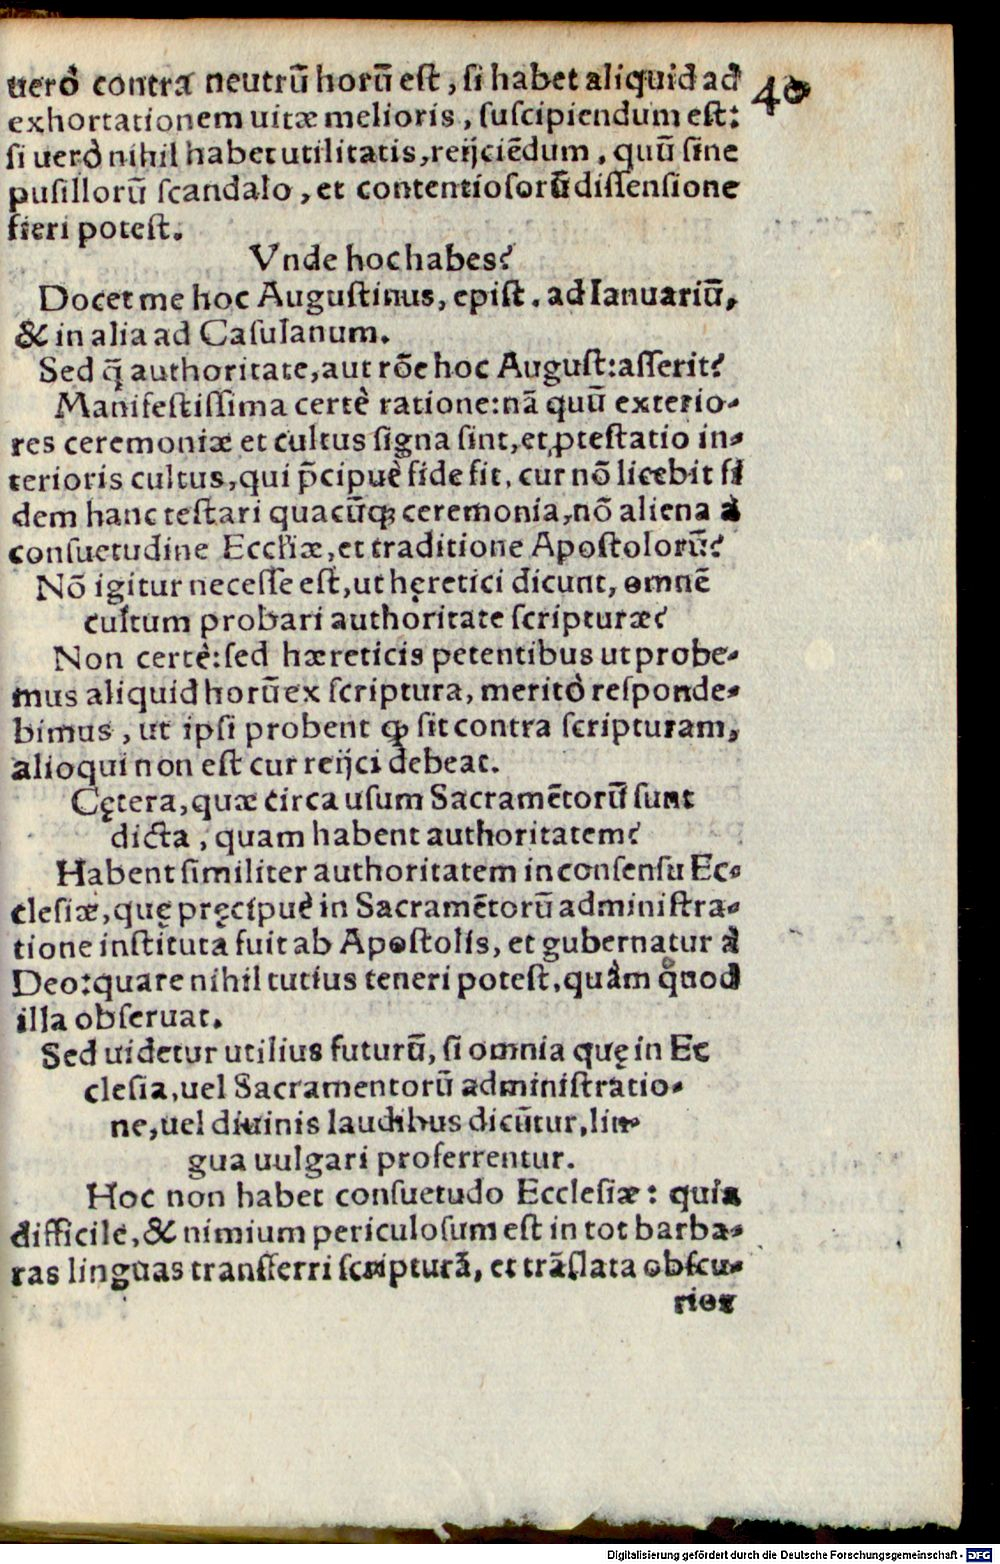 uerò contra neutrū horū est, si habet aliquid ad
40
exhortationem uitæ melioris, suscipiendum est:
si uerò nihil habet utilitatis, reijciēdum, quū sine
pusillorū scandalo, et contentiosorū dissensione
fieri potest.
Vnde hoc habes?
Docet me hoc Augustinus, epist. ad Ianuariū,
& in alia ad Casulanum.
Sed q̄ authoritate, aut rōe hoc August: asserit?
Manifestissima certè ratione: nā quū exterio-
res ceremoniæ et cultus signa sint, et ꝓtestatio in-
terioris cultus, qui p̄cipuè fide fit, cur nō licebit fi
dem hanc testari quacūqꝫ ceremonia, nō aliena à
consuetudine Eccl'iæ, et traditione Apostolorū?
Nō igitur necesse est, ut hęretici dicunt, omnē
cultum probari authoritate scripturæ?
Non certè: sed hæreticis petentibus ut probe-
mus aliquid horū ex scriptura, meritò responde-
bimus, ut ipsi probent ꝙ sit contra scripturam,
alioqui non est cur reijci debeat.
Cętera, quæ circa usum Sacramētorū sunt
dicta, quam habent authoritatem?
Habent similiter authoritatem in consensu Ec-
clesiæ, quę pręcipuè in Sacramētorū administra-
tione instituta fuit ab Apostolis, et gubernatur à
Deo: quare nihil tutius teneri potest, quàm quod
illa obseruat.
Sed uidetur utilius futurū, si omnia quę in Ec
clesia, uel Sacramentorū administratio-
ne, uel diuinis laudibus dicūtur, lin-
gua uulgari proferrentur.
Hoc non habet consuetudo Ecclesiæ: quia
difficile, & nimium periculosum est in tot barba-
ras linguas transferri scripturā, et trāslata obscu-
rior
Digitalisierung gefördert durch die Deutsche Forschungsgemeinschaft - DFG